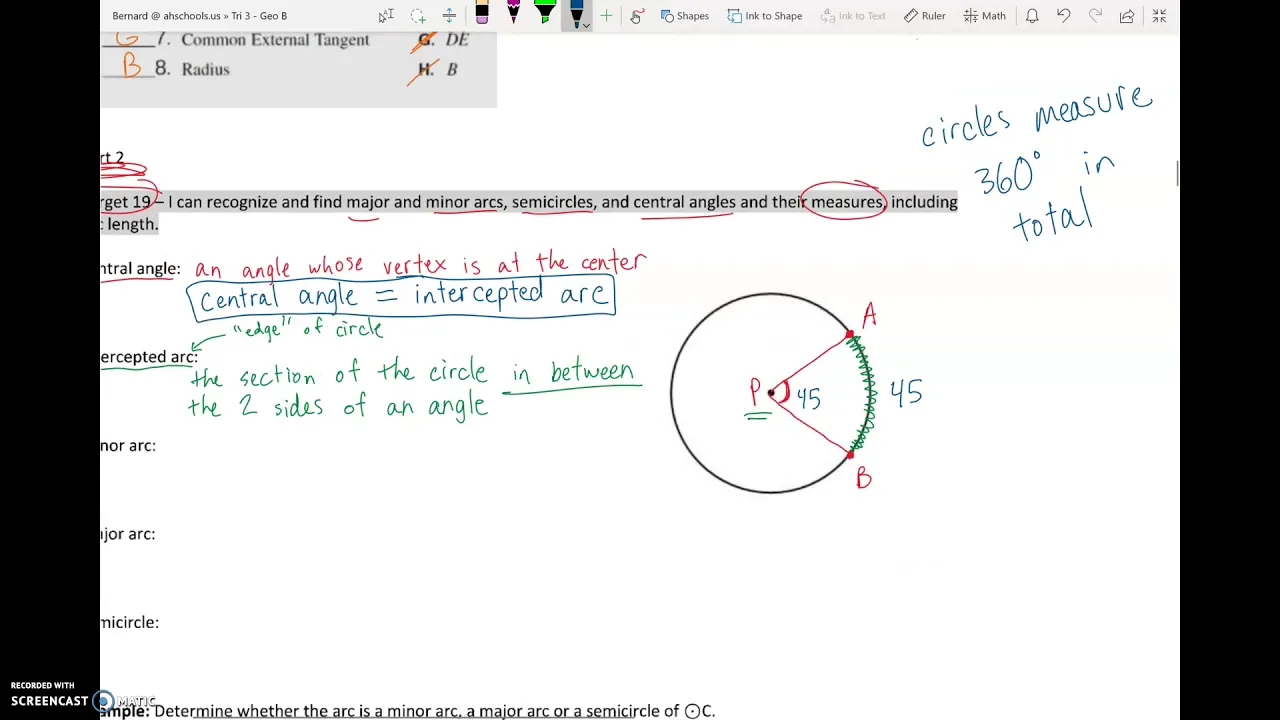 Bernard @ ahschools.us » Tri 3 - Geo B
Shapes
Ink to Shape
Ink to Text
Ruler
Math
G 7. Common External Tangent G. DE
B 8. Radius H. B
circles measure
360° in
total
rt 2
rget 19 – I can recognize and find major and minor arcs, semicircles, and central angles and their measures, including
c length.
ntral angle: an angle whose vertex is at the center
central angle = intercepted arc
"edge" of circle
ercepted arc:
the section of the circle in between
the 2 sides of an angle
A
P 45 45
B
nor arc:
ajor arc:
micircle:
RECORDED WITH
SCREENCAST MATIC
ample: Determine whether the arc is a minor arc, a major arc or a semicircle of ⊙C.